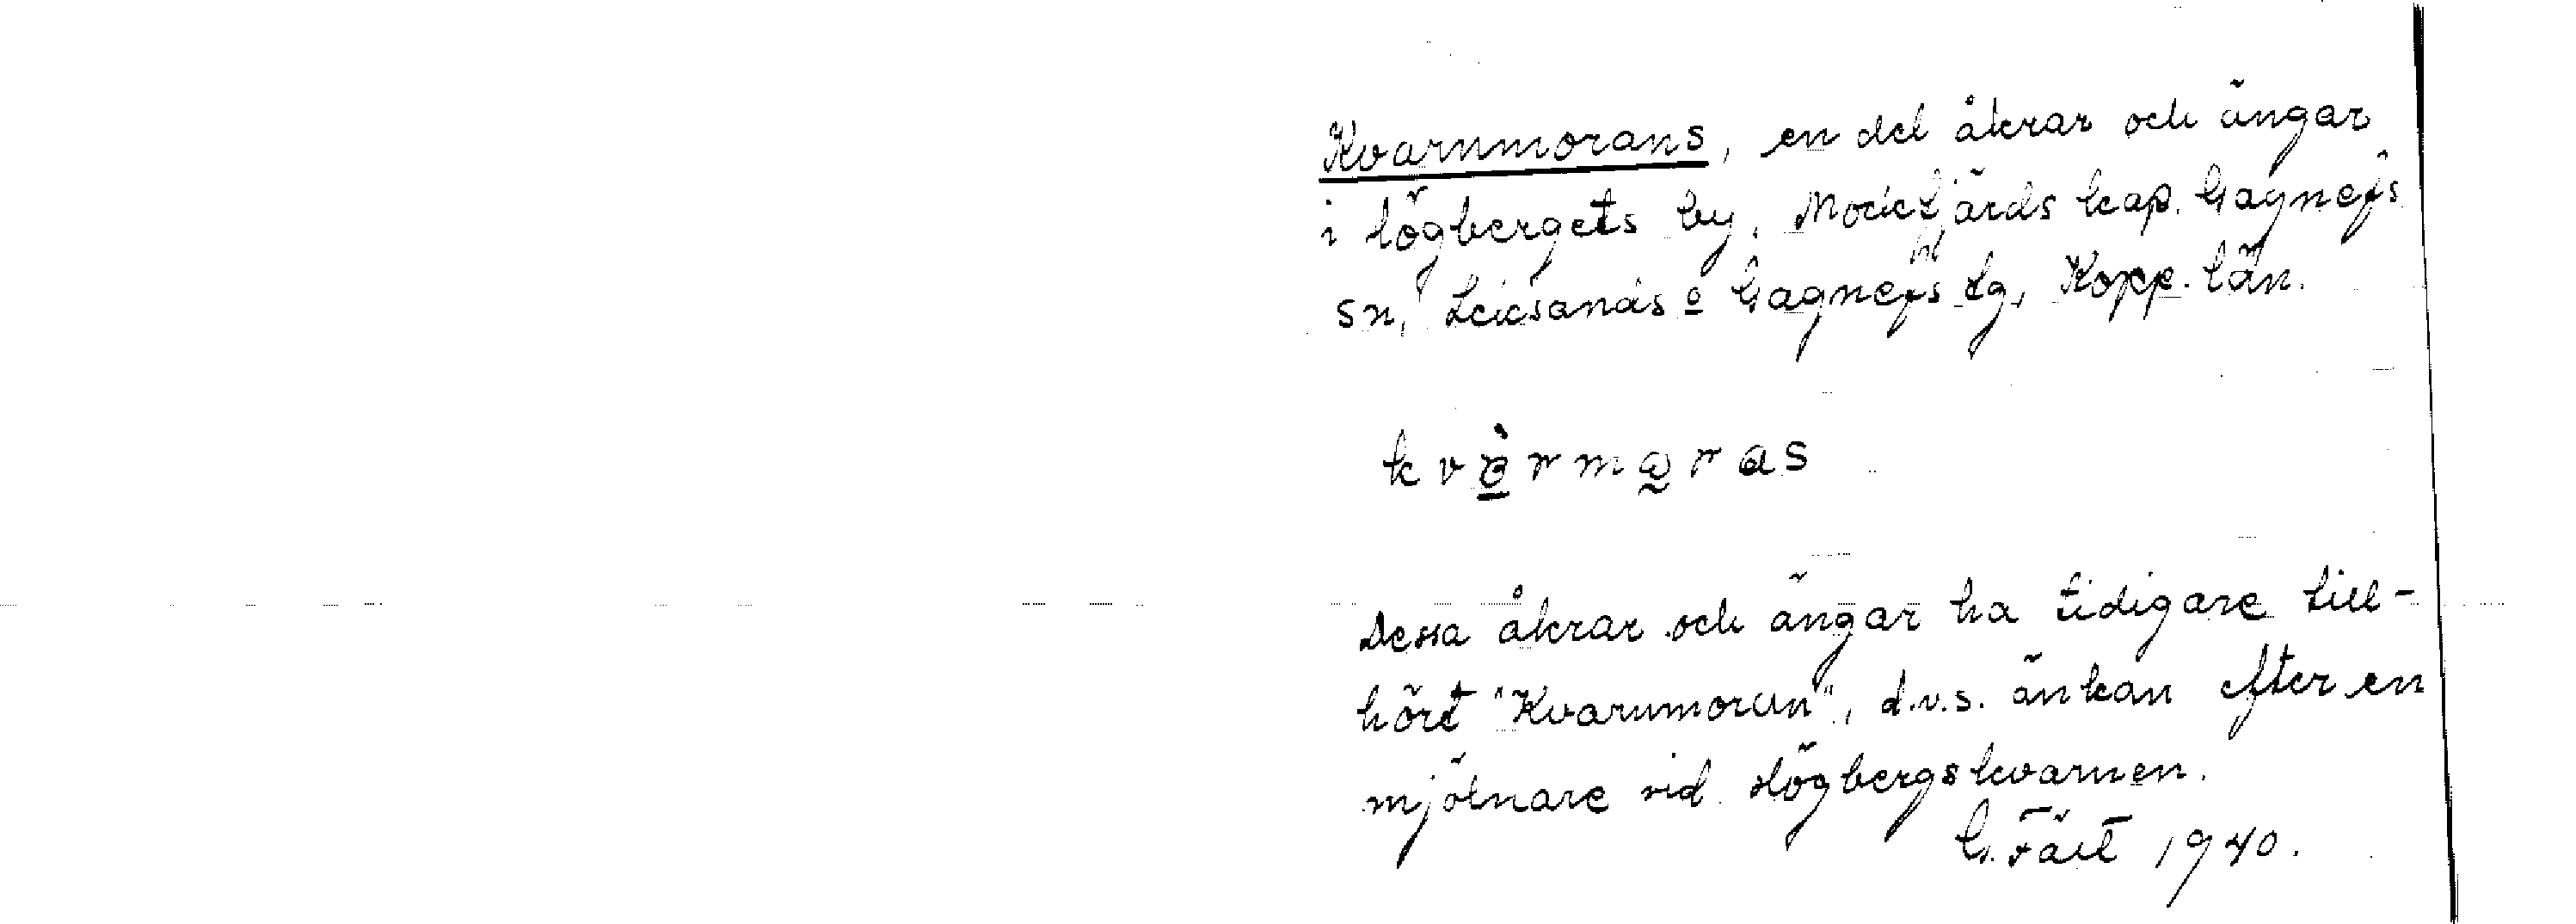 Kvarnmorans, en del åkrar och ängar
i Högbergets by, Mockfjärds kap. Gagnefs
sn, Leksands o Gagnefs tg, Kopp. län.
Dessa åkrar och ängar ha tidigare till-
hört "Kvarnmoran", d.v.s. änkan efter en
mjölnare vid Högbergskvarnen.
G. 1940.